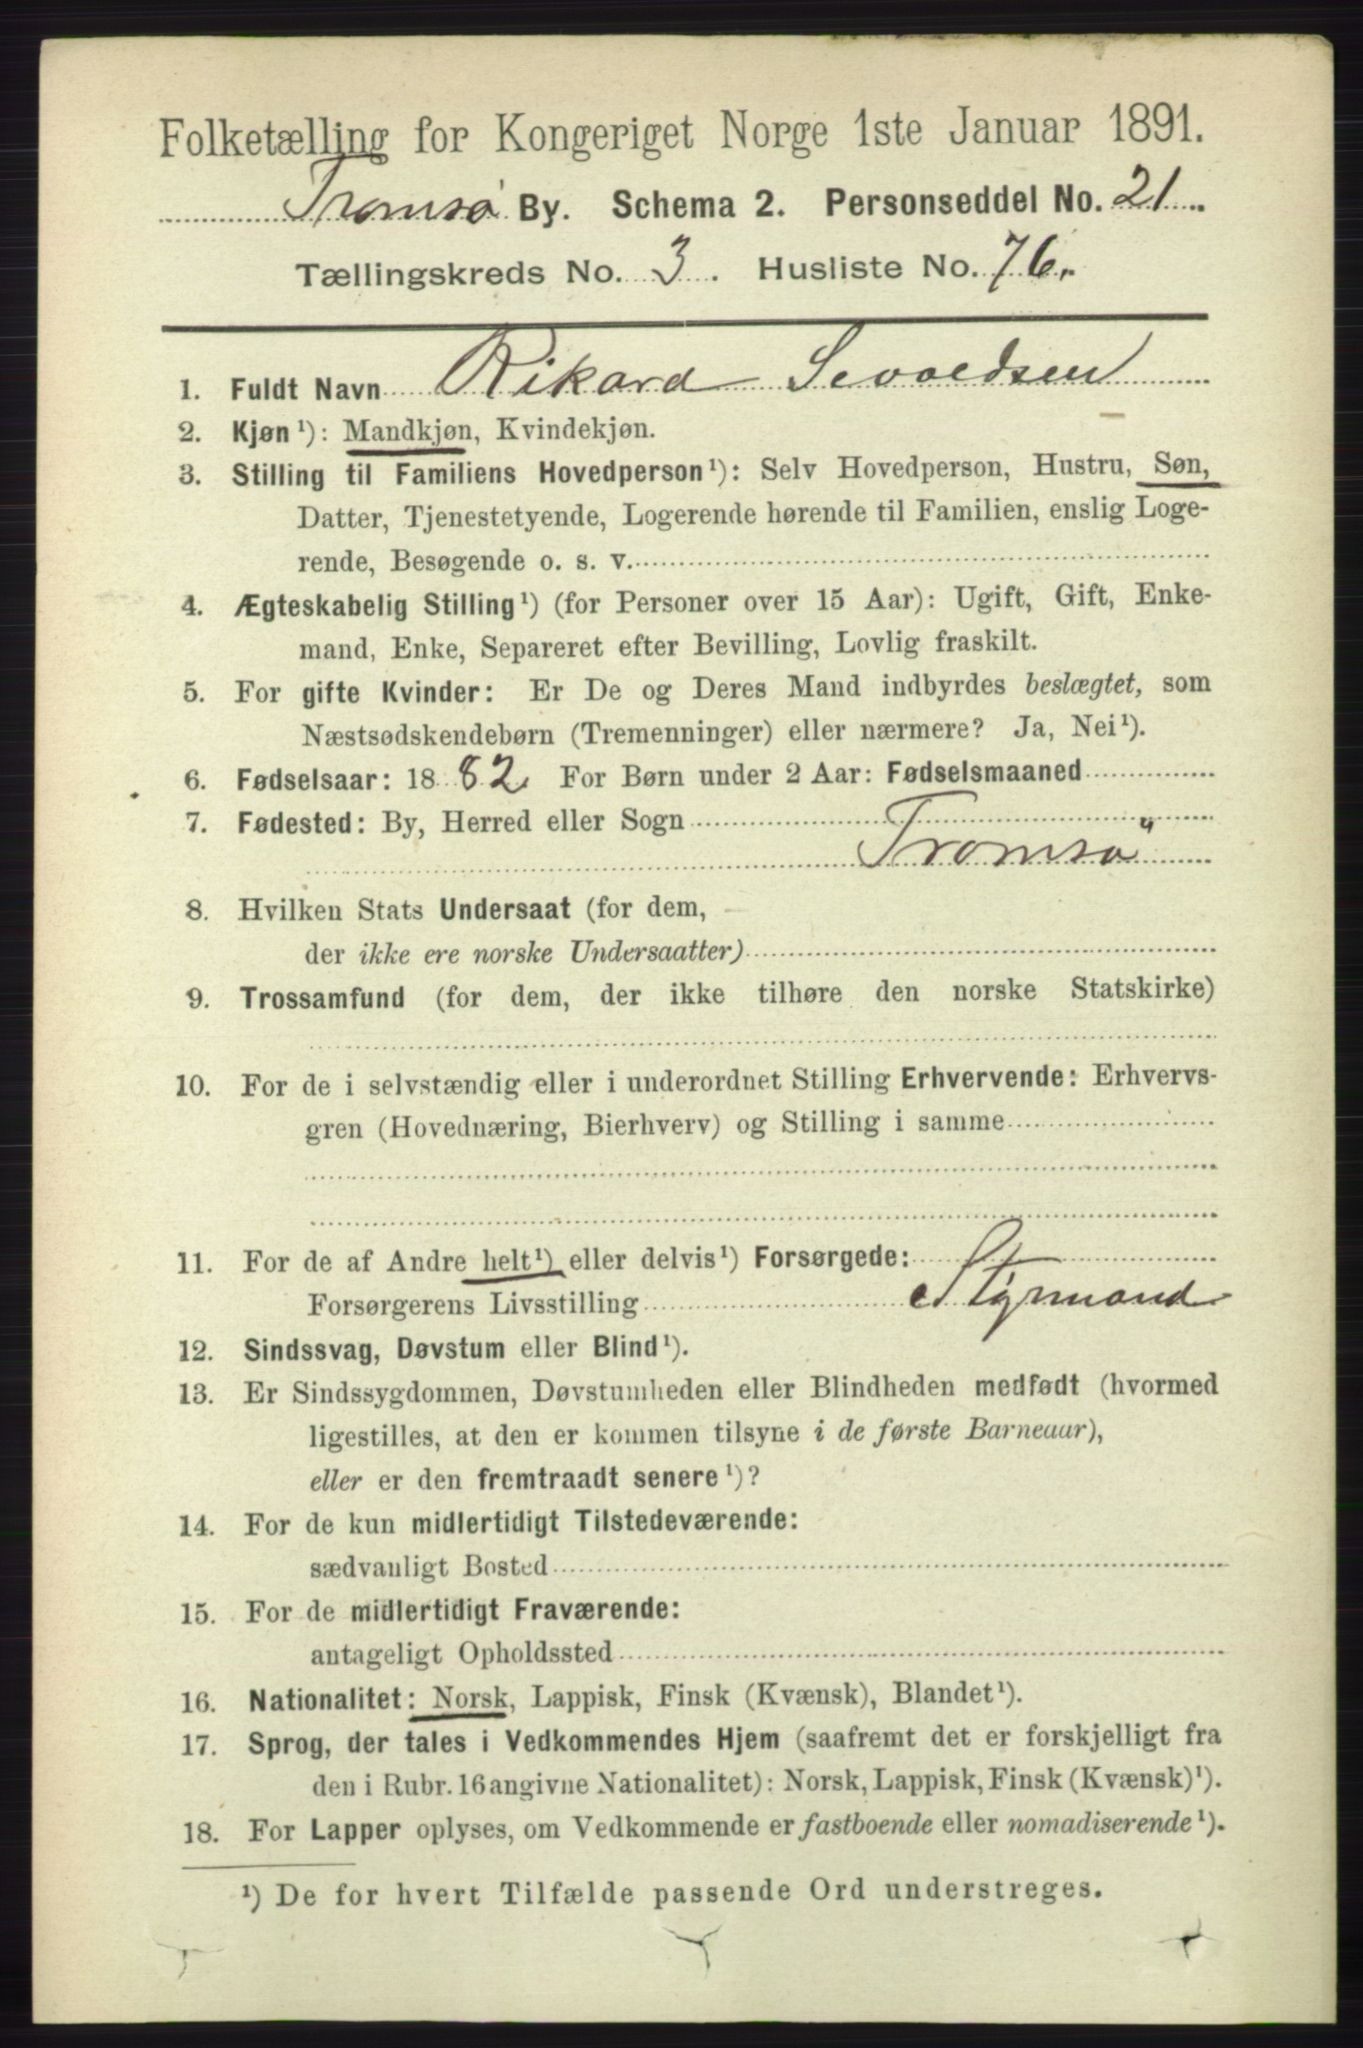 Folketælling for Kongeriget Norge 1ste Januar 1891.
Tromsø By. Schema 2. Personseddel No. 21
Tællingskreds No. 3. Husliste No. 76.
1. Fuldt Navn Rikard Sevoldsen
2. Kjøn¹): Mandkjøn, Kvindekjøn.
3. Stilling til Familiens Hovedperson¹): Selv Hovedperson, Hustru, Søn,
Datter, Tjenestetyende, Logerende hørende til Familien, enslig Loge-
rende, Besøgende o. s. v.
4. Ægteskabelig Stilling¹) (for Personer over 15 Aar): Ugift, Gift, Enke-
mand, Enke, Separeret efter Bevilling, Lovlig fraskilt.
5. For gifte Kvinder: Er De og Deres Mand indbyrdes beslægtet, som
Næstsødskendebørn (Tremenninger) eller nærmere? Ja, Nei¹).
6. Fødselsaar: 1882 For Børn under 2 Aar: Fødselsmaaned
7. Fødested: By, Herred eller Sogn
Tromsö
8. Hvilken Stats Undersaat (for dem,
der ikke ere norske Undersaatter)
9. Trossamfund (for dem, der ikke tilhøre den norske Statskirke)
10. For de i selvstændig eller i underordnet Stilling Erhvervende: Erhvervs-
gren (Hovednæring, Bierhverv) og Stilling i samme
11. For de af Andre helt¹) eller delvis¹) Forsørgede:
Forsørgerens Livsstilling Styrmand
12. Sindssvag, Døvstum eller Blind¹).
13. Er Sindssygdommen, Døvstumheden eller Blindheden medfødt (hvormed
ligestilles, at den er kommen tilsyne i de første Barneaar),
eller er den fremtraadt senere¹)?
14. For de kun midlertidigt Tilstedeværende:
sædvanligt Bosted
15. For de midlertidigt Fraværende:
antageligt Opholdssted
16. Nationalitet: Norsk, Lappisk, Finsk (Kvænsk), Blandet¹).
17. Sprog, der tales i Vedkommendes Hjem (saafremt det er forskjelligt fra
den i Rubr. 16 angivne Nationalitet): Norsk, Lappisk, Finsk (Kvænsk)¹).
18. For Lapper oplyses, om Vedkommende er fastboende eller nomadiserende¹).
¹) De for hvert Tilfælde passende Ord understreges.